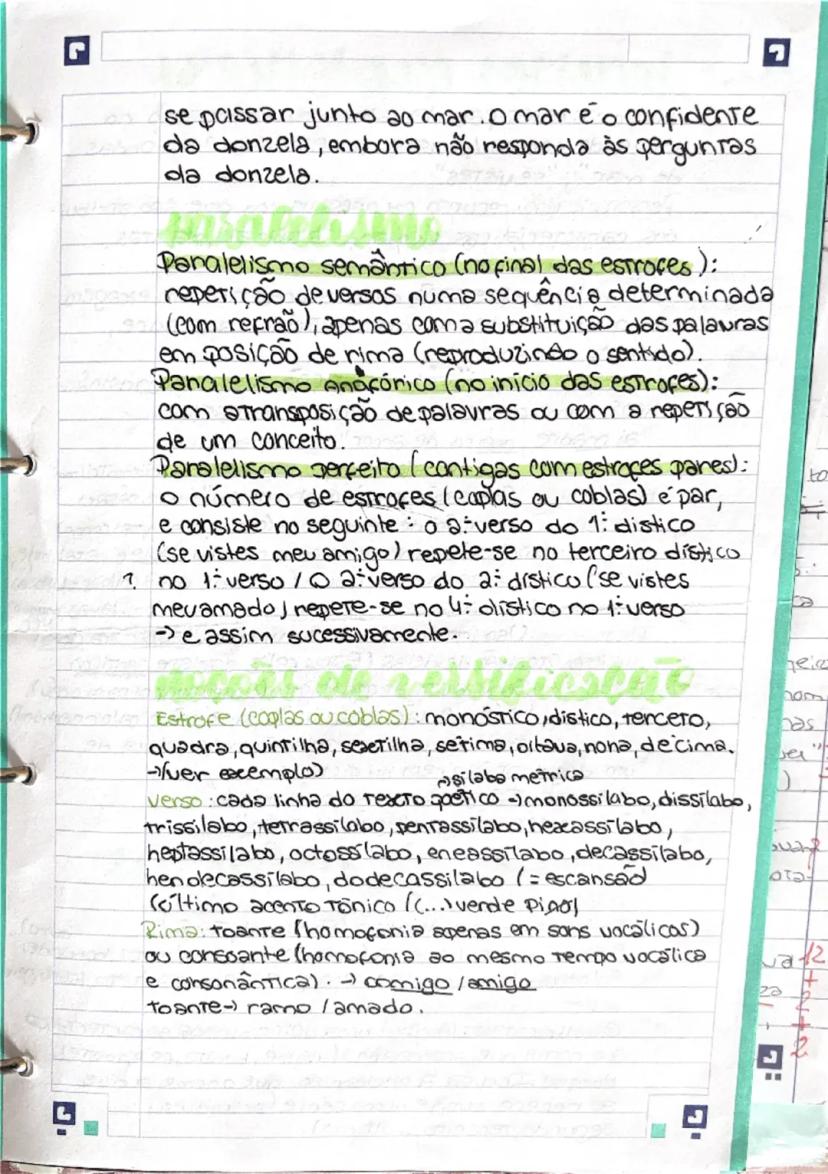 se passar junto ao mar. o mar é o confidente
da donzela, embora não responda às perguntas
da donzela.
paralelismo
Paralelismo semântico (no final das estrofes):
repetição de versos numa sequência determinada
(com refrão), apenas com a substituição das palavras
em posição de rima (reproduzindo o sentido).
Paralelismo anafórico (no início das estrofes):
com a transposição de palavras ou com a repetição
de um conceito.
Paralelismo perfeito (cantigas com estrofes pares):
o número de estrofes (coplas ou coblas) é par,
e consiste no seguinte: o 2º verso do 1º distico
(se vistes meu amigo) repete-se no terceiro dístico
? no 1º verso / O 2º verso do 2º dístico (se vistes
meu amado) repete-se no 4º dístico no 1º verso
-> e assim sucessivamente.
noções de versificação
Estrofe (coplas ou coblas): monóstico, distico, terceto,
quadra, quintilha, sextilha, sétima, oitava, nona, decima.
->(ver exemplo)
sílaba métrica
verso: cada linha do texto poético -> monossílabo, dissílabo,
trissílabo, tetrassílabo, pentassílabo, hexassílabo,
heptassílabo, octossílabo, eneassílabo, decassílabo,
hendecassílabo, dodecassílabo (= escansão
(último acento tónico ((...) verde pino)
Rima: toante (homofonia apenas em sons vocálicos)
ou consoante (homofonia ao mesmo tempo vocálica
e consonântica). -> comigo / amigo
toante -> ramo / amado.